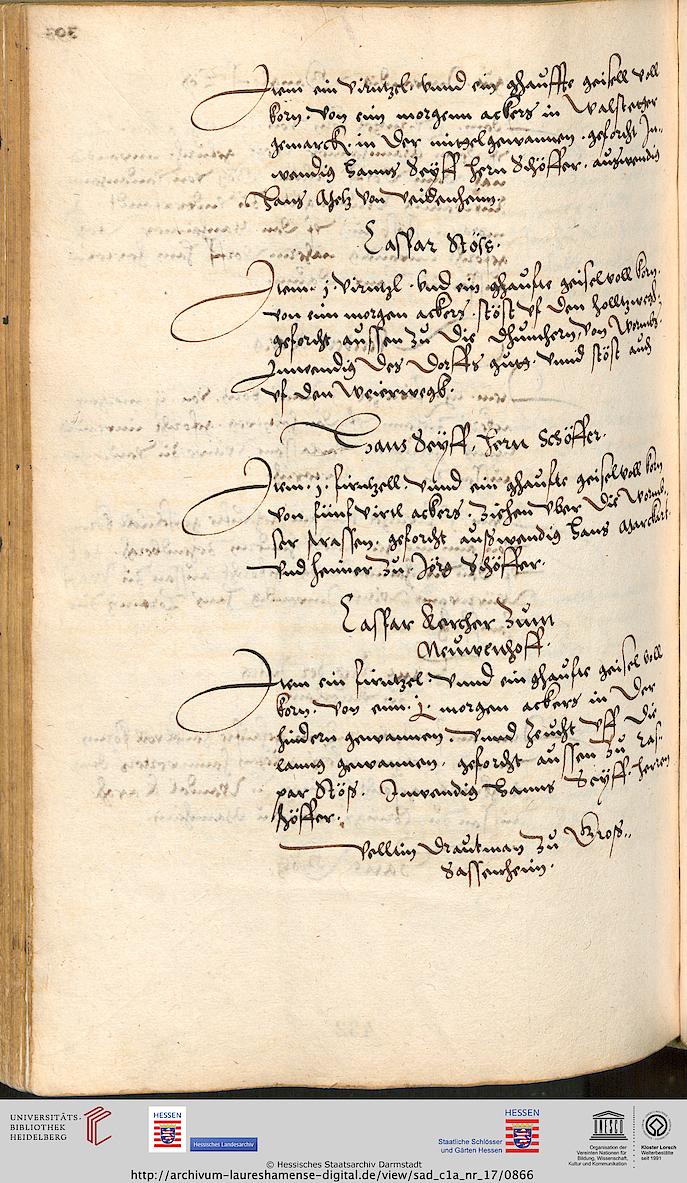 Item ein virntzel vnnd ein ghauffte geisell voll
korn. von eim morgenn ackers in Walstetter
gemarck in der mittelgewannen. geforcht In-
wendig Hanns Seyff hern Schöffer. auswendig
Hans von Veidenheim.
Caspar Stöss.
Item. j. virntzl. vnd ein ghaufte geiselvoll korn.
von eim morgen ackers. stöst vf den holltzwegk.
geforcht aussen zu die dhumhern von Wormbs.
Innwendig des dorffs gutt. vnnd stöst auch
vf den Weierwegk.
Hans Seyff. hern Schöffer.
Item. j. firntzell. vnnd ein ghaufte geiselvoll korn
von fünf virtl ackers. ziehen vber die Wormb-
ser strassen. geforcht außwendig Hans Marckart.
vnd heiner zu Jörg Schöffer.
Caspar Kercher zum
Neuwenhoff.
Item ein firntzel. vnnd ein ghaufte geisel voll
korn. von eim. j. morgen ackers in der
hindern gewannen. vnnd zeucht vff die
lanng gewannen. geforcht aussen zu Cas-
par Stöss. Innwendig Hanns Seyff. herren
Schöffer.
Velltin Drautman zu Gros-
Sassenheim.
UNIVERSITÄTS-
BIBLIOTHEK
HEIDELBERG
HESSEN
Hessisches Landesarchiv
Staatliche Schlösser
und Gärten Hessen
HESSEN
Organisation der
Vereinten Nationen für
Bildung, Wissenschaft,
Kultur und Kommunikation
Kloster Lorsch
Welterbestätte
seit 1991
© Hessisches Staatsarchiv Darmstadt
http://archivum-laureshamense-digital.de/view/sad_c1a_nr_17/0866